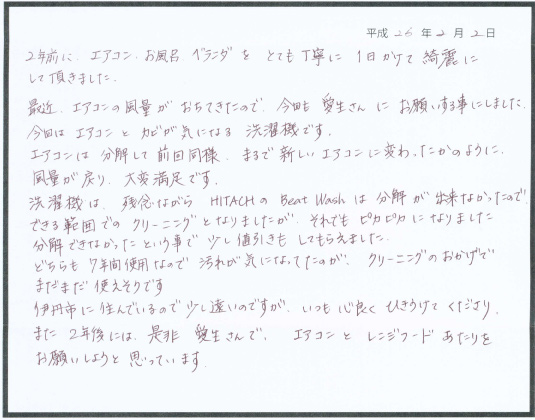 平成 26 年 2 月 2 日
2年前に、エアコン、お風呂、ベランダを とても丁寧に 1日かけて 綺麗に
して頂きました。
最近、エアコンの風量が おちてきたので、今回も 愛生さんに お願いする事にしました。
今回は エアコンと カビが気になる 洗濯機です。
エアコンは 分解して 前回同様、まるで新しいエアコンに変わったかのように、
風量が戻り、大変満足です。
洗濯機は、残念ながら HITACHIの Beat Wash は 分解が 出来なかったので、
できる範囲での クリーニングとなりましたが、それでも ピカピカに なりました
分解できなかったという事で 少し値引きも してもらえました。
どちらも 7年間使用なので 汚れが気になってたのが、クリーニングのおかげで
まだまだ 使えそうです
伊丹市に 住んでいるので 少し遠いのですが、いつも 心良く ひきうけてくださり、
また 2年後には、是非 愛生さんで、 エアコンと レンジフード あたりを
お願いしようと 思っています。